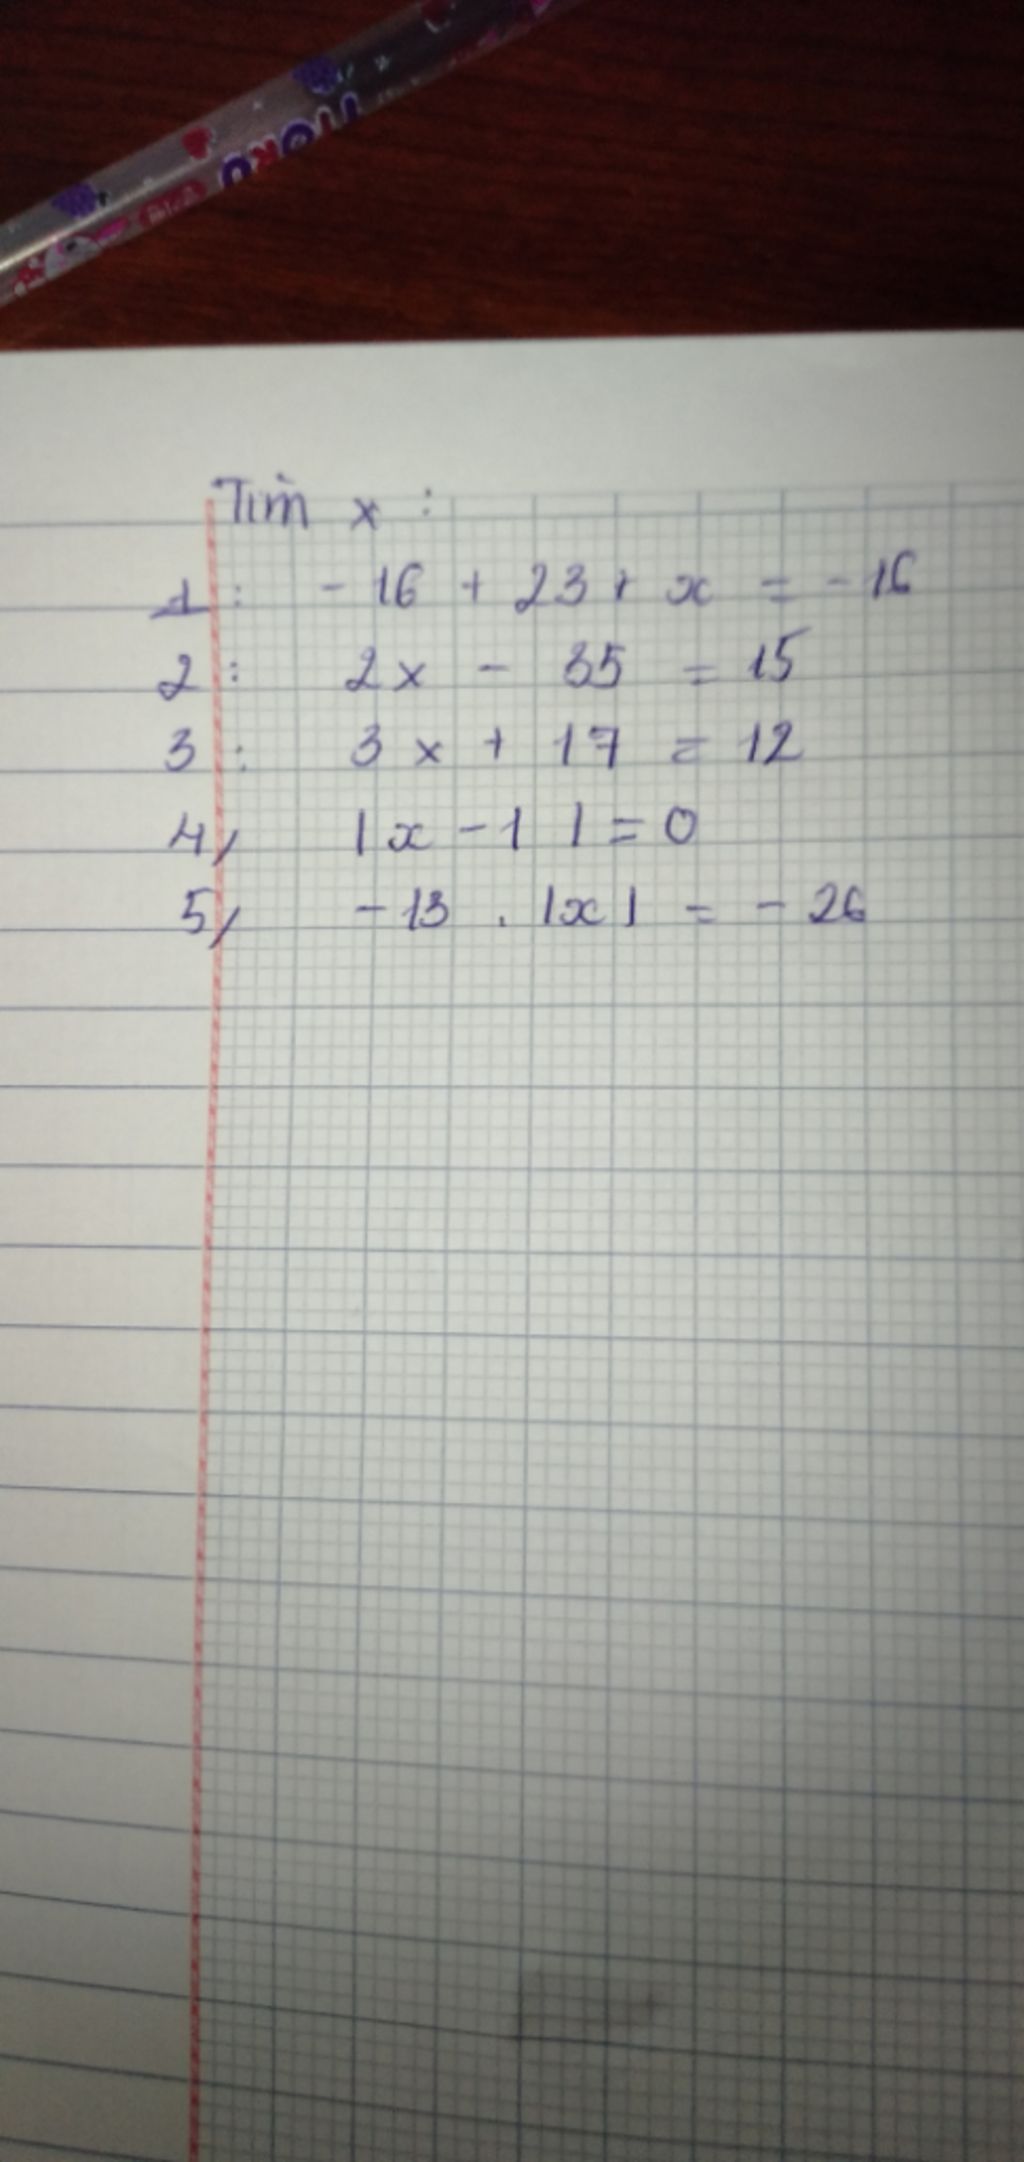 Tìm x :
1 : - 16 + 23 + x = - 16
2 : 2x - 35 = 15
3 : 3x + 17 = 12
4, |x - 1 | = 0
5, - 13 . |x| = - 26